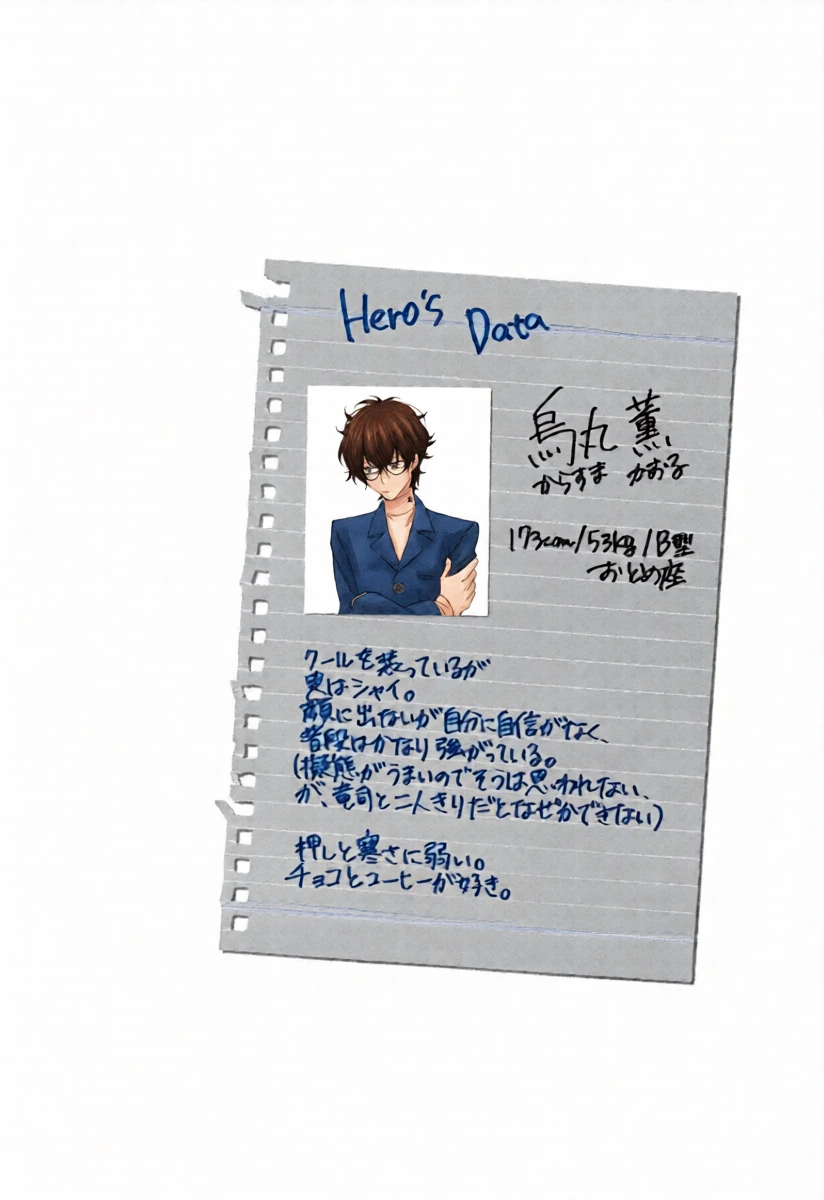 Hero's Data
烏丸 薫
からすま かおる
173cm/53kg/B型
おとめ座
クールを装っているが
実はシャイ。
顔に出ないが自分に自信がなく、
普段はかなり強がっている。
(擬態がうまいのでそうは思われない、
が、竜司と二人きりだとなぜかできない)
押しと寒さに弱い。
チョコとコーヒーが好き。